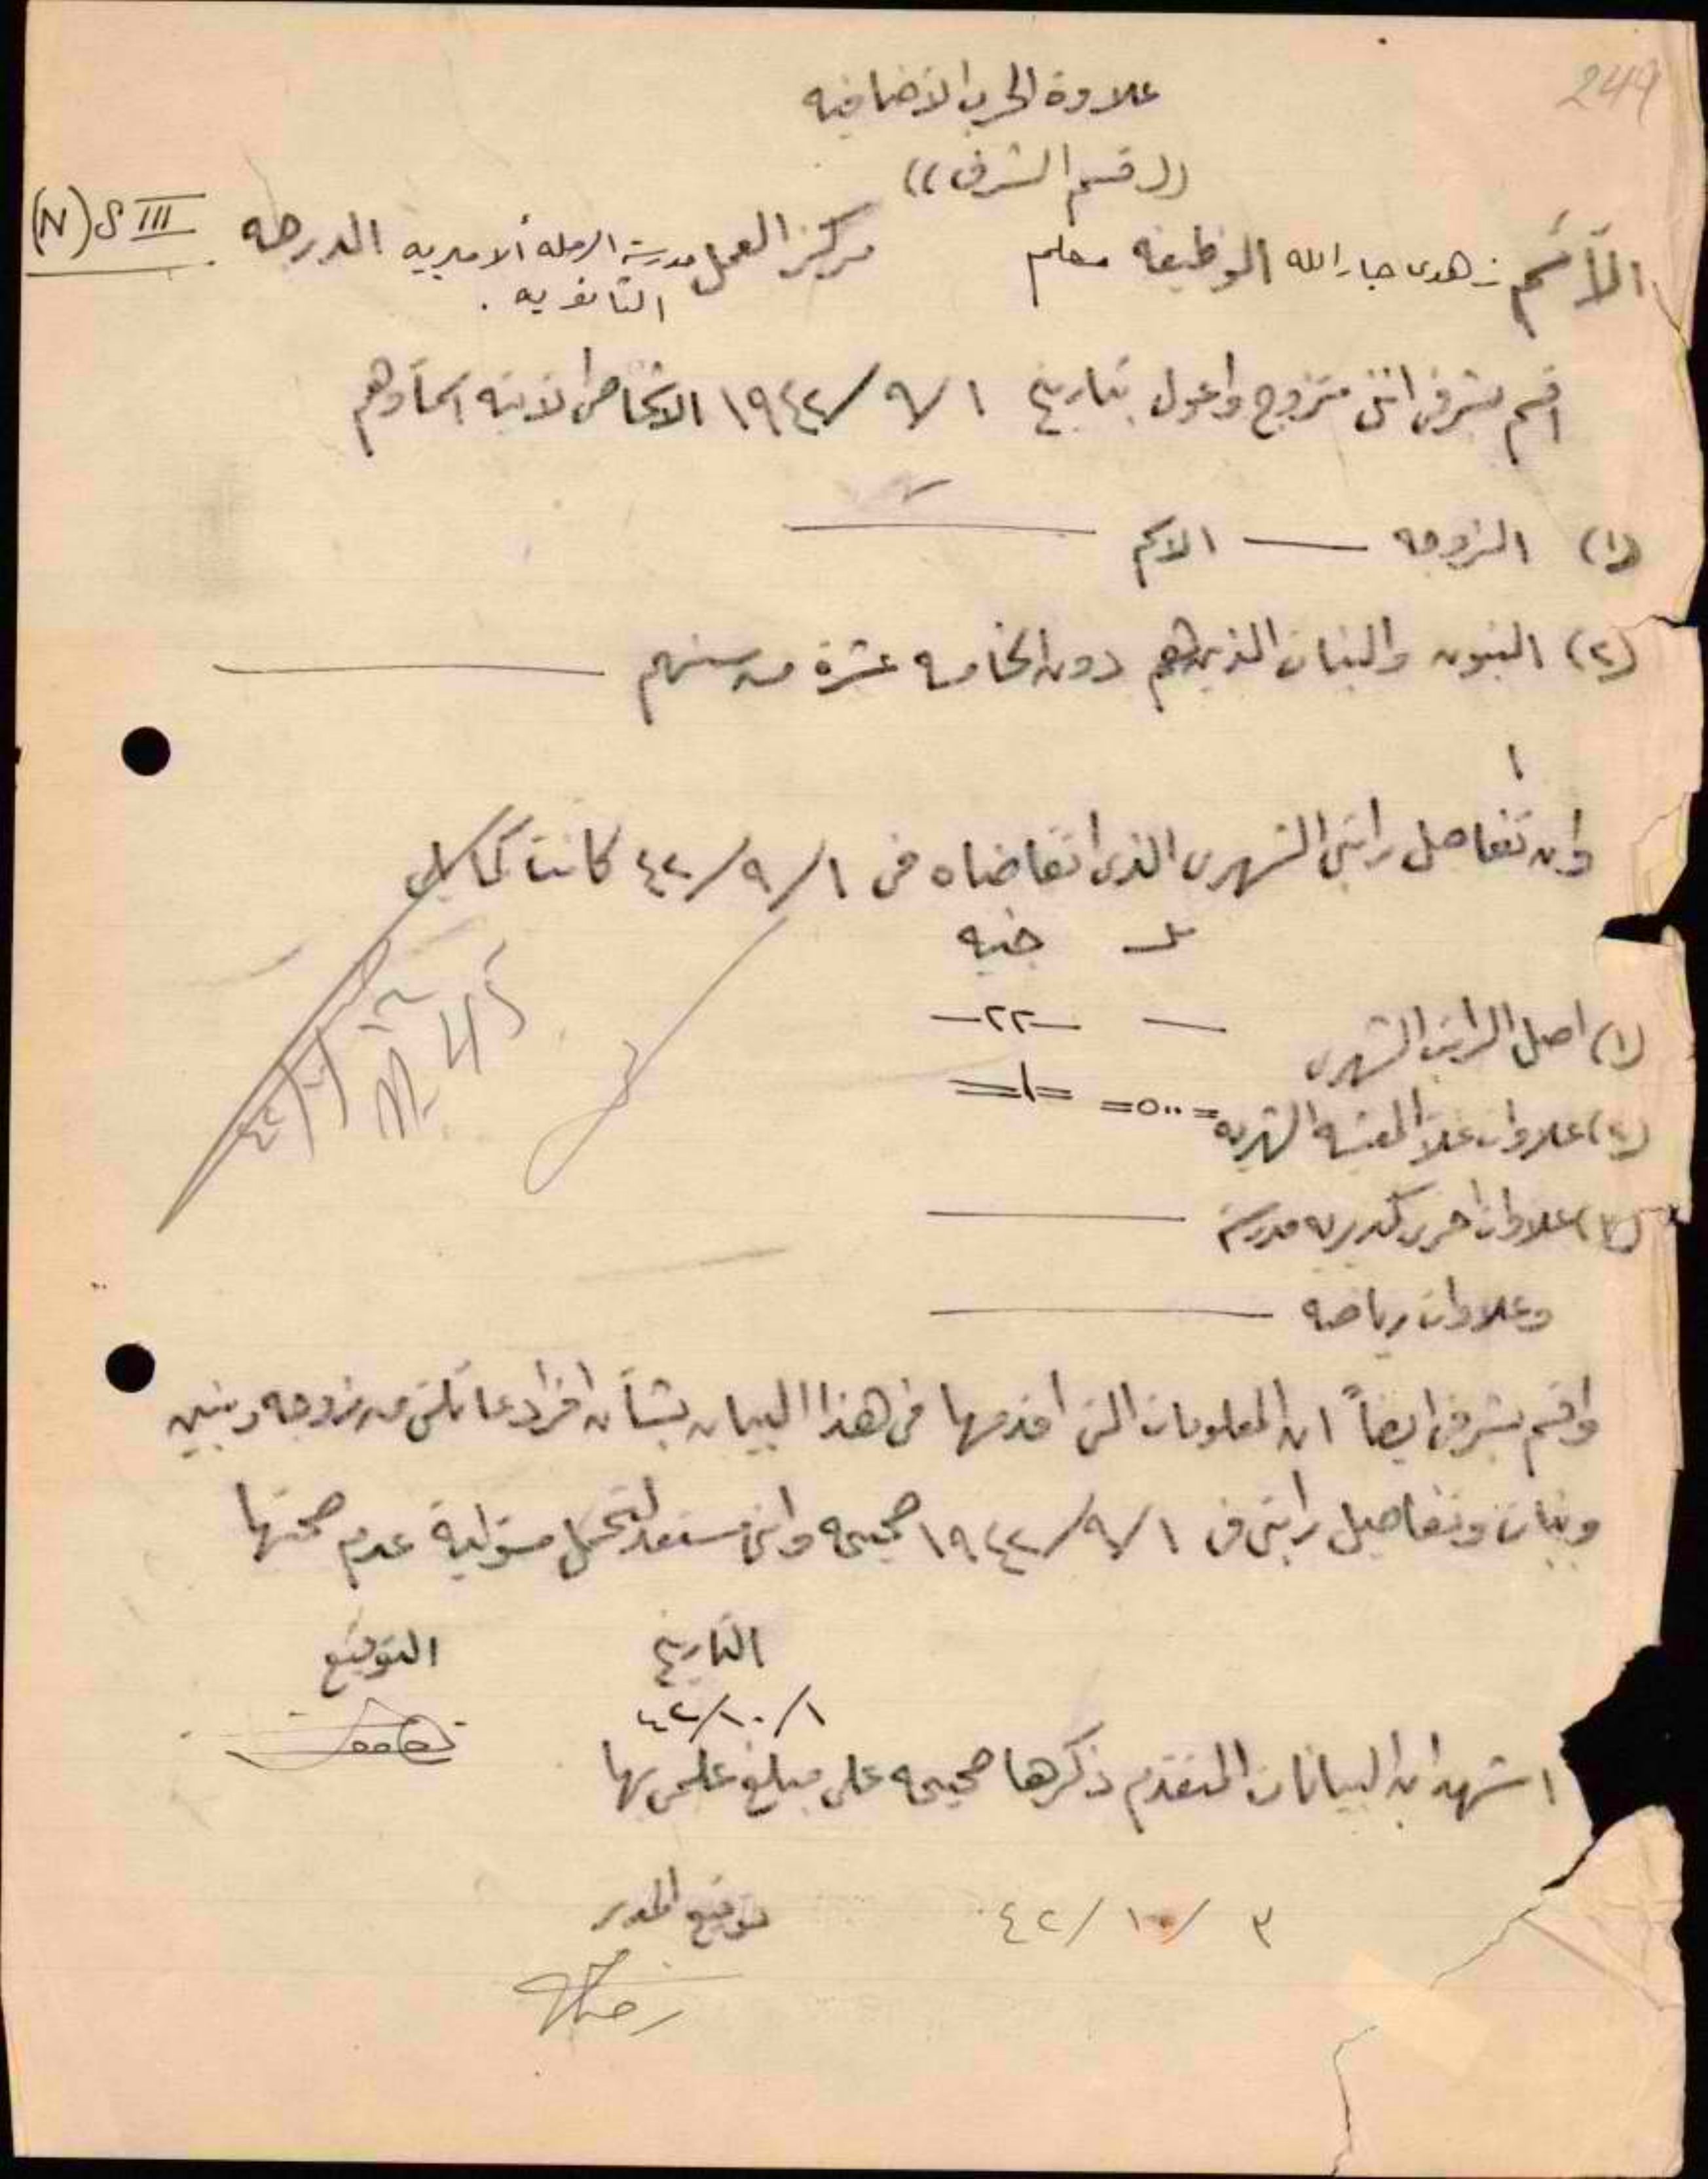 249
علاوة الحرب الاضافيه
((قسم الشرف))
الأسم زهدى جارالله الوظيفه معلم مركز العمل مدرسة الرمله الاميريه الثانويه . الدرجه (N) S III
اقسم بشرفى اننى متزوج واعول بتاريخ ١/٩/١٩٤٢ الاشخاص الاتيه اسماؤهم
(١) الزوجه — الاسم
(٢) البنون والبنات الذين هم دون الخامسه عشرة من سنهم
١
وان تفاصيل راتبى الشهرى الذى اتقاضاه فى ١/٩/٤٢ كانت كما يلى
مل جنيه
(١) اصل الراتب الشهرى — -٢٢-
(٢) علاوات غلاء المعيشه الشهريه =٥٠٠= =١=
(٣) علاوات اخرى كمديريه مدرسة
وعلاوات رياضه
واقسم بشرفى ايضاً ان المعلومات التى اقدمها فى هذا البيان بشأن افراد عائلتى من زوجه وبنين
وبنات وتفاصيل راتبى فى ١/٩/١٩٤٢ صحيحه وانى مستعد لتحمل مسؤلية عدم صحتها
التاريخ التوقيع
١/١٠/٤٢
اشهد ان البيانات المتقدم ذكرها صحيحه على مبلغ علمى بها
توقيع المدير
٣/١٠/٤٢